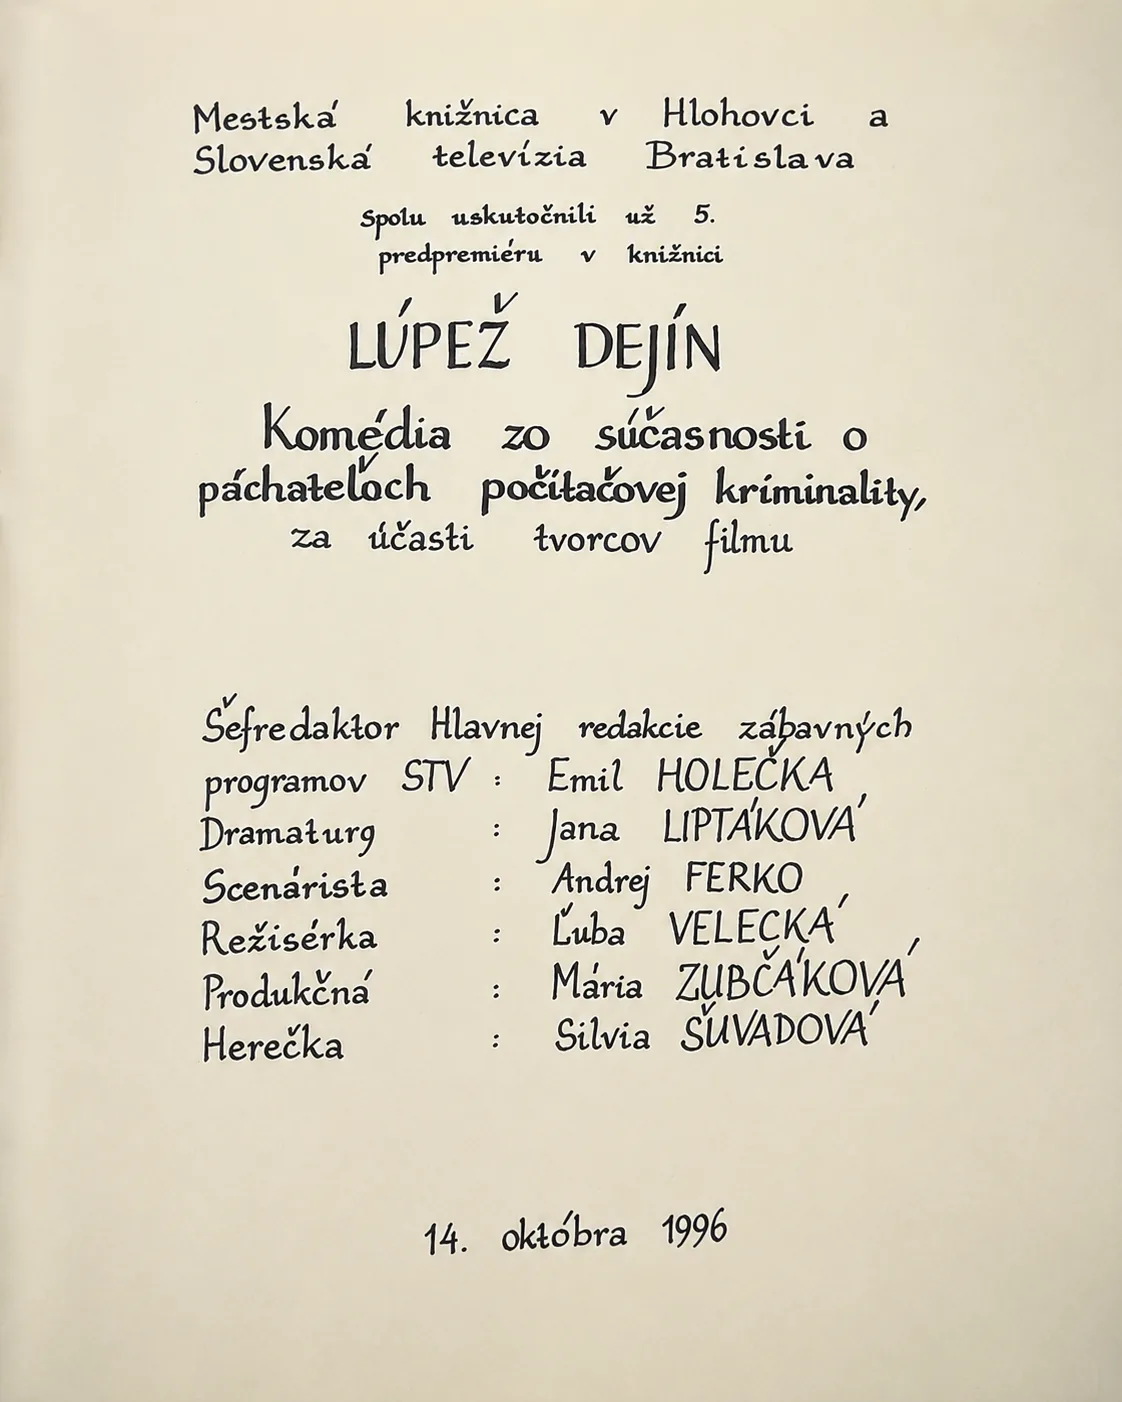 Mestská knižnica v Hlohovci a
Slovenská televízia Bratislava
Spolu uskutočnili už 5.
predpremiéru v knižnici
LÚPEŽ DEJÍN
Komédia zo súčasnosti o
páchateľoch počítačovej kriminality,
za účasti tvorcov filmu
Šéfredaktor Hlavnej redakcie zábavných
programov STV : Emil HOLEČKA
Dramaturg : Jana LIPTÁKOVÁ
Scenárista : Andrej FERKO
Režisérka : Ľuba VELECKÁ
Produkčná : Mária ZUBČÁKOVÁ
Herečka : Silvia ŠUVADOVÁ
14. októbra 1996